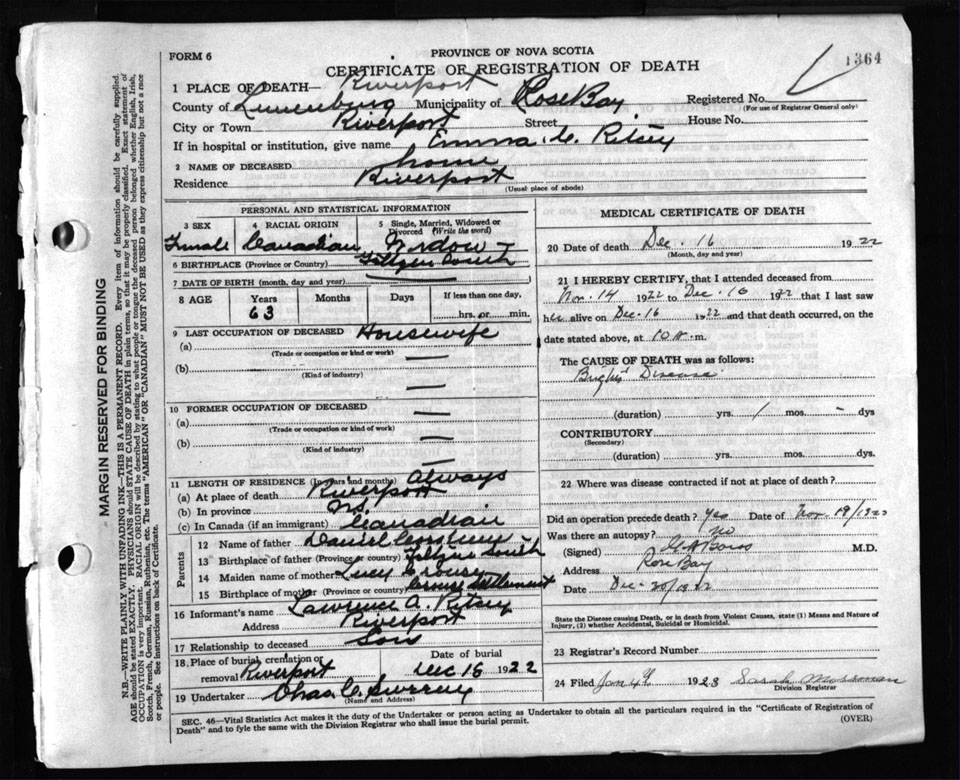 1364
FORM 6
PROVINCE OF NOVA SCOTIA
CERTIFICATE OR REGISTRATION OF DEATH
1 PLACE OF DEATH— Riverport
County of Lunenburg Municipality of Rose Bay Registered No.
(For use of Registrar General only)
City or Town Riverport Street House No.
If in hospital or institution, give name Emma C. Ritsey
2 NAME OF DECEASED home
Residence Riverport
(Usual place of abode)
PERSONAL AND STATISTICAL INFORMATION
3 SEX 4 RACIAL ORIGIN 5 Single, Married, Widowed or Divorced (Write the word)
Female Canadian Widow
6 BIRTHPLACE (Province or Country) Feltzen South
7 DATE OF BIRTH (month, day and year)
8 AGE Years Months Days If less than one day,
63 hrs. or min.
9 LAST OCCUPATION OF DECEASED Housewife
(a)
(Trade or occupation or kind or work)
(b)
(Kind of industry)
10 FORMER OCCUPATION OF DECEASED
(a)
(Trade or occupation or kind of work)
(b)
(Kind of industry)
11 LENGTH OF RESIDENCE (In years and months) Always
(a) At place of death Riverport
(b) In province N.S.
(c) In Canada (if an immigrant) Canadian
Parents
12 Name of father Daniel
13 Birthplace of father (Province or country) Feltzen South
14 Maiden name of mother Lucy Crouse
15 Birthplace of mother (Province or country) Crouse Settlement
16 Informant's name Lawrence A. Ritsey
Address Riverport
17 Relationship to deceased Son
18. Place of burial, cremation or removal Riverport Date of burial Dec 18 1922
19 Undertaker Chas C.
(Name and Address)
MEDICAL CERTIFICATE OF DEATH
20 Date of death Dec. 16 1922
(Month, day and year)
21 I HEREBY CERTIFY, that I attended deceased from
Nov. 14 1922 to Dec. 16 1922 that I last saw
her alive on Dec. 16 1922 and that death occurred, on the
date stated above, at 10 m.
The CAUSE OF DEATH was as follows:
Bright's Disease
(duration) yrs. / mos. - dys
CONTRIBUTORY
(Secondary)
(duration) yrs. mos. dys.
22 Where was disease contracted if not at place of death?
Did an operation precede death? Yes Date of Nov. 19/1922
Was there an autopsy? No
(Signed) M.D.
Address Rose Bay
Date Dec-20/1922
State the Disease causing Death, or in death from Violent Causes, state (1) Means and Nature of
Injury, (2) whether Accidental, Suicidal or Homicidal.
23 Registrar's Record Number
24 Filed Jan 4th 1923 Sarah Mossman
Division Registrar
SEC. 46—Vital Statistics Act makes it the duty of the Undertaker or person acting as Undertaker to obtain all the particulars required in the "Certificate of Registration of
Death" and to fyle the same with the Division Registrar who shall issue the burial permit.
(OVER)
MARGIN RESERVED FOR BINDING
N.B.—WRITE PLAINLY WITH UNFADING INK—THIS IS A PERMANENT RECORD. Every item of information should be carefully supplied.
AGE should be stated EXACTLY. PHYSICIANS should STATE CAUSE OF DEATH in plain terms, so that it may be properly classified. Exact statement of
OCCUPATION is very important. RACIAL ORIGIN will be described by stating to what people or tongue the deceased person belonged whether English, Irish,
Scotch, French, German, Russian, Ruthenian, etc. The terms "AMERICAN" OR "CANADIAN" MUST NOT BE USED as they express citizenship but not a race
or people. See instructions on back of Certificate.